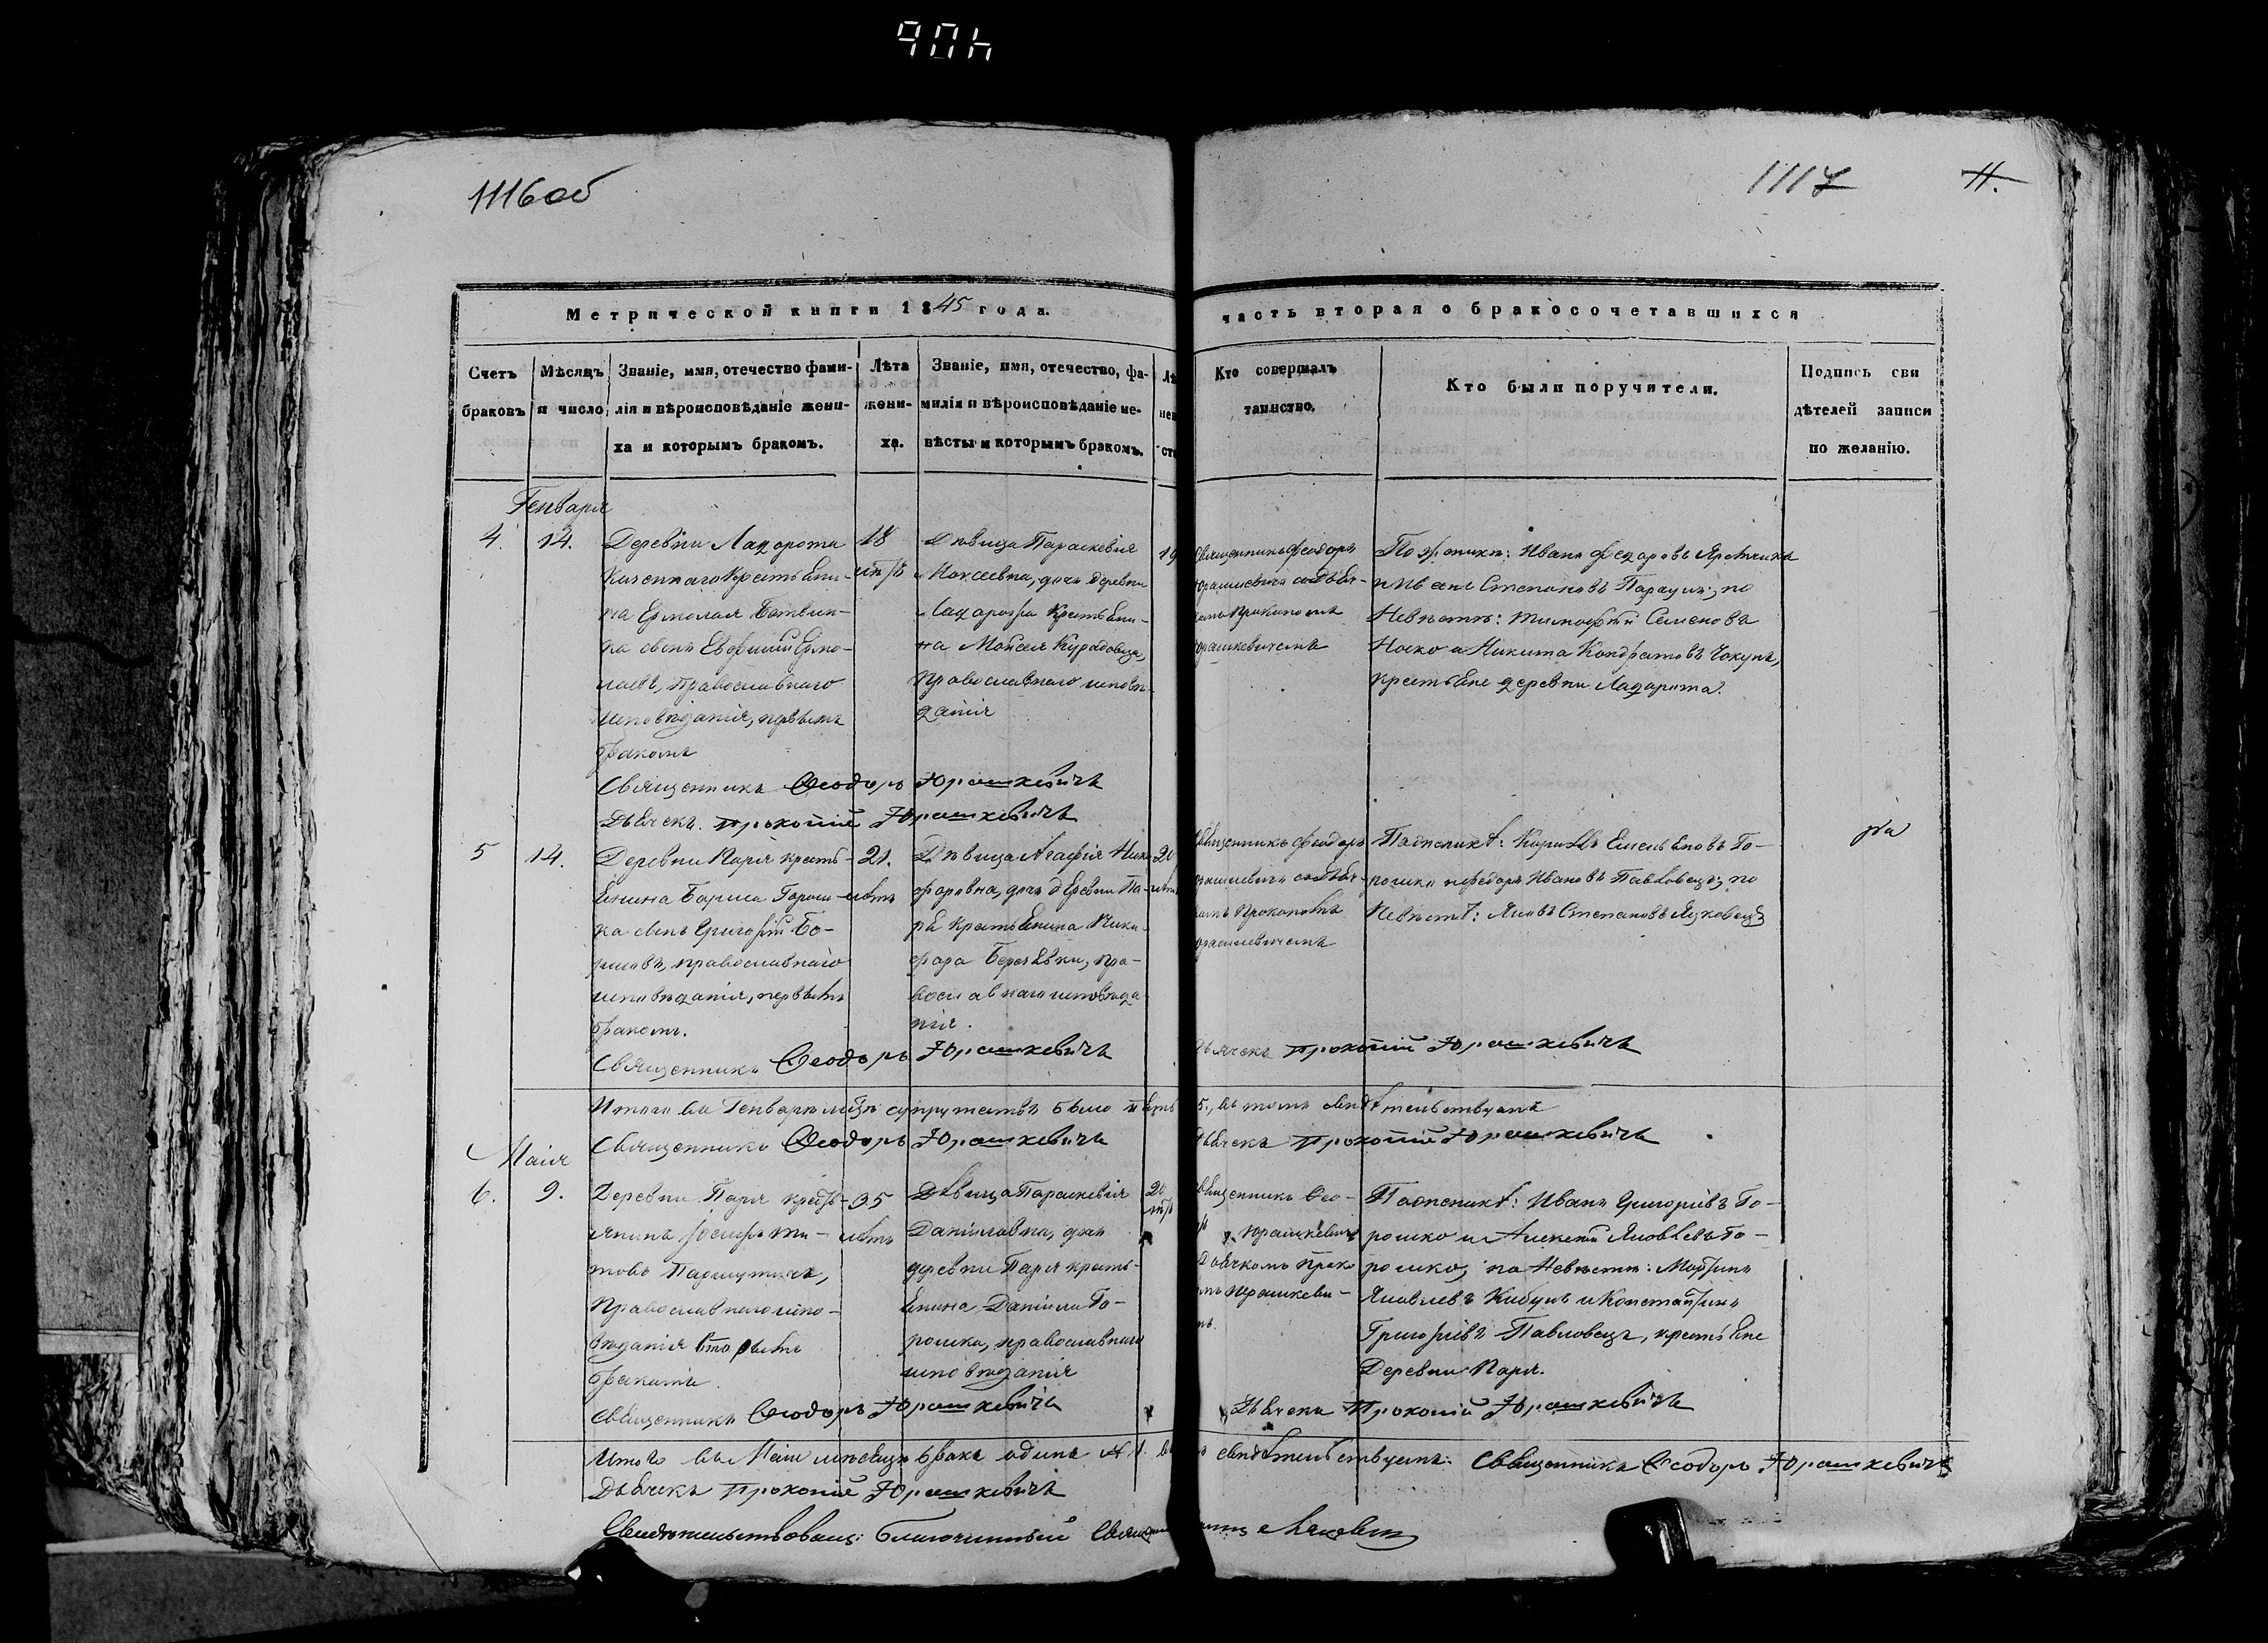 904
1116об
1117 11.
Метрической книги 1845 года.
часть вторая о бракосочетавшихся
Счетъ браковъ
Мѣсяцъ и число
Званіе, имя, отечество фами-
лія и вѣроисповѣданіе жени-
ха и которымъ бракомъ.
Лѣта
жени-
ха.
Званіе, имя, отечество, фа-
милія и вѣроисповѣданіе не-
вѣсты и которымъ бракомъ.
Кто совершалъ
таинство.
Кто были поручители.
Подпись сви
дѣтелей записи
по желанію.
Генваря
4. 14.
Деревни Лацарота
Казеннаго Крестьяни-
на Ермолая
сынъ Евфимій Ермо-
лаевъ, православнаго
исповѣданія, первымъ
бракомъ
18
лѣтъ
Дѣвица Параскевія
Моисеевна, дочь деревни
Лацарота Крестьяни-
на Моисея
православнаго исповѣ-
данія
19
Священникъ Феодоръ
Юрашкевичъ съ дьяч-
комъ Прокопіемъ
Юрашкевичемъ
По женихѣ: Иванъ Федоровъ
и Иванъ Степановъ по
Невѣстѣ: Тимофей Семеновъ
Носко и Никита Кондратовъ
крестьяне деревни Лацарота.
Священникъ Ѳеодоръ Юрашкевичъ
Дьячекъ Прокопій Юрашкевичъ
5 14.
Деревни Паря кресть-
янина Бориса Горош-
ка сынъ Григорій Бо-
рисовъ, православнаго
исповѣданія, первымъ
бракомъ.
21.
лѣтъ
Дѣвица Агафія Ники-
форовна, дочь деревни Па-
ря Крестьянина Ники-
фора пра-
вославнаго исповѣда
нія.
20
лѣтъ
Священникъ Феодоръ
Юрашкевичъ съ дьяч-
комъ Прокопіемъ
Юрашкевичемъ
По женихѣ: Емельяновъ Го-
рошко и Федоръ Ивановъ Павловецъ; по
Невѣстѣ: Яковъ Степановъ
Священникъ Ѳеодоръ Юрашкевичъ
Дьячекъ Прокопій Юрашкевичъ
Итого въ Генварѣ м-цѣ супружествъ было пять 5., въ томъ свидѣтельствуемъ
Священникъ Ѳеодоръ Юрашкевичъ
Дьячекъ Прокопій Юрашкевичъ
Маія
6. 9.
Деревни Паря кресть-
янинъ Іосифъ Ти-
товъ
Православнаго испо-
вѣданія вторымъ
бракомъ.
35
лѣтъ
Дѣвица Параскевія
Даниловна, дочь
деревни Паря кресть-
янина Даніила Го-
рошка, православнаго
исповѣданія
20
лѣтъ
Священникъ Ѳео-
Юрашкевичъ
Дьячкомъ Проко
Юрашкеви-
По женихѣ: Иванъ Григоріевъ Го-
рошко и Алексей Яковлевъ Го-
рошко, по Невѣстѣ: Мартинъ
Яковлевъ и Константинъ
Григоріевъ Павловецъ, крестьяне
Деревни Паря.
Священникъ Ѳеодоръ Юрашкевичъ
Дьячекъ Прокопій Юрашкевичъ
Итого въ Маіи мѣсяцѣ бракъ одинъ свидѣтельствуемъ: Священникъ Ѳеодоръ Юрашкевичъ
Дьячекъ Прокопій Юрашкевичъ
Свидѣтельствовалъ: Благочинный